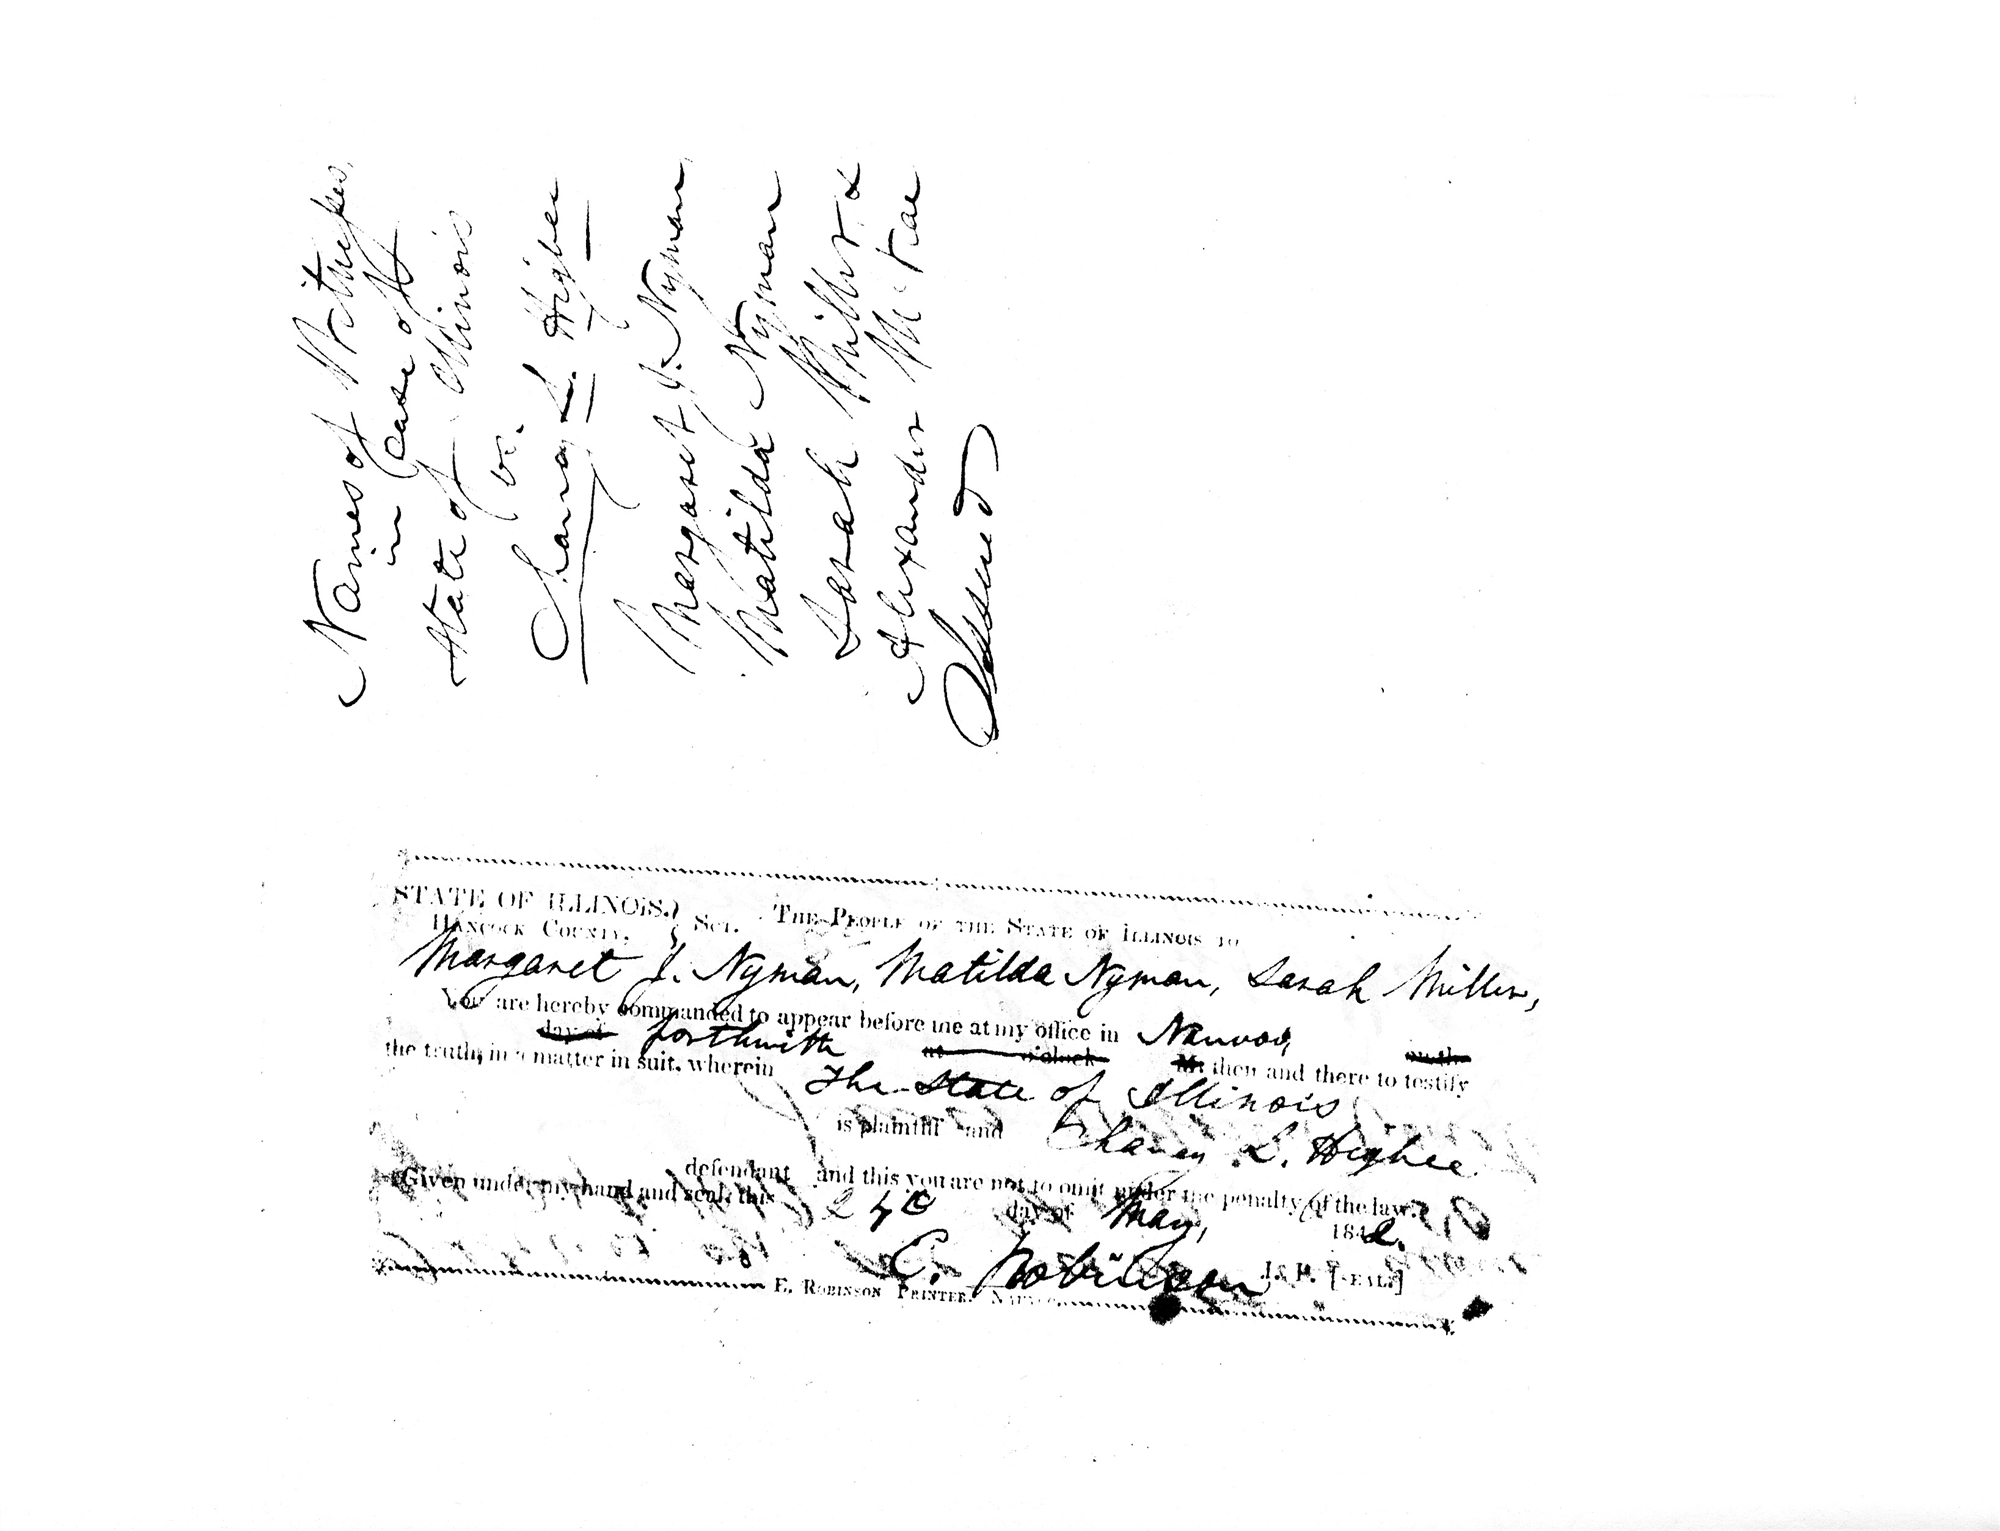 Names of Witnesses
in case of
State of Illinois
vs.
Chancy L. Higbee
Margaret J. Nyman
Matilda Nyman
Sarah Miller &
Alexander McRae
STATE OF ILLINOIS,
HANCOCK COUNTY, } SCT. THE PEOPLE OF THE STATE OF ILLINOIS TO
Margaret J. Nyman, Matilda Nyman, Sarah Miller,
You are hereby commanded to appear before me at my office in Nauvoo, on the
day of forthwith at o'clock M. then and there to testify
the truth, in a matter in suit, wherein The State of Illinois
is plaintiff and Chancy L. Higbee
defendant and this you are not to omit under the penalty of the law.
Given under my hand and seal, this day of May, 1842.
E. Robinson J. P. [SEAL]
E. ROBINSON PRINTER, NAUVOO.